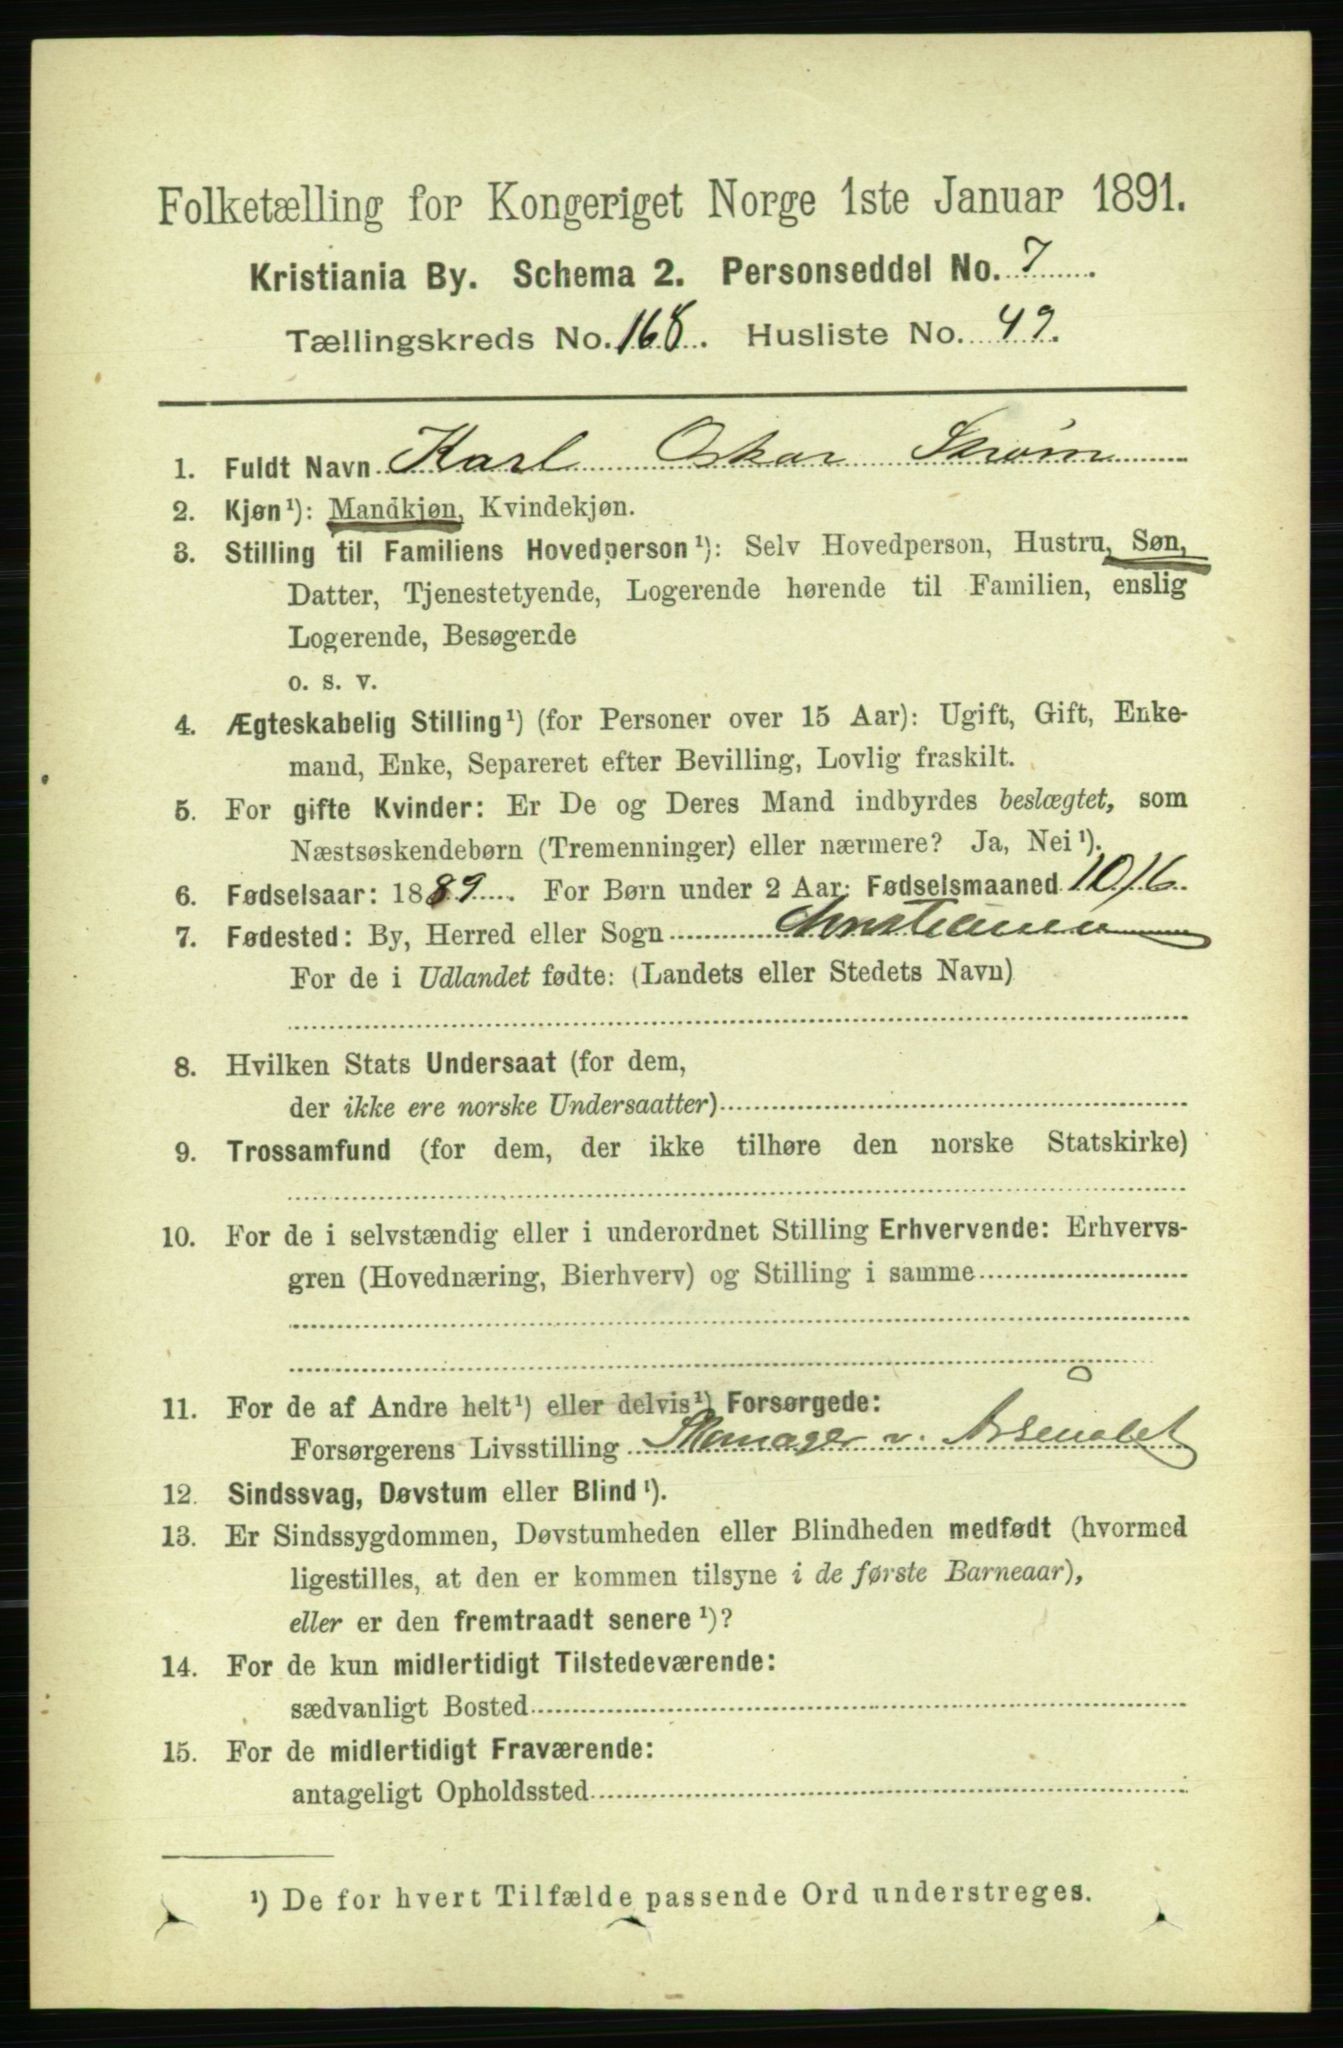 Folketælling for Kongeriget Norge 1ste Januar 1891.
Kristiania By. Schema 2. Personseddel No. 7
Tællingskreds No. 168. Husliste No. 49.
1. Fuldt Navn Karl Oskar Strøm
2. Kjøn¹): Mandkjøn, Kvindekjøn.
3. Stilling til Familiens Hovedperson¹): Selv Hovedperson, Hustru, Søn,
Datter, Tjenestetyende, Logerende hørende til Familien, enslig
Logerende, Besøgende
o. s. v.
4. Ægteskabelig Stilling¹) (for Personer over 15 Aar): Ugift, Gift, Enke-
mand, Enke, Separeret efter Bevilling, Lovlig fraskilt.
5. For gifte Kvinder: Er De og Deres Mand indbyrdes beslægtet, som
Næstsøskendebørn (Tremenninger) eller nærmere? Ja, Nei¹).
6. Fødselsaar: 1889. For Børn under 2 Aar: Fødselsmaaned 10/6.
7. Fødested: By, Herred eller Sogn Christiania
For de i Udlandet fødte: (Landets eller Stedets Navn)
8. Hvilken Stats Undersaat (for dem,
der ikke ere norske Undersaatter)
9. Trossamfund (for dem, der ikke tilhøre den norske Statskirke)
10. For de i selvstændig eller i underordnet Stilling Erhvervende: Erhvervs-
gren (Hovednæring, Bierhverv) og Stilling i samme
11. For de af Andre helt¹) eller delvis¹) Forsørgede:
Forsørgerens Livsstilling Skomager v. Arsenalet
12. Sindssvag, Døvstum eller Blind¹).
13. Er Sindssygdommen, Døvstumheden eller Blindheden medfødt (hvormed
ligestilles, at den er kommen tilsyne i de første Barneaar),
eller er den fremtraadt senere¹)?
14. For de kun midlertidigt Tilstedeværende:
sædvanligt Bosted
15. For de midlertidigt Fraværende:
antageligt Opholdssted
¹) De for hvert Tilfælde passende Ord understreges.